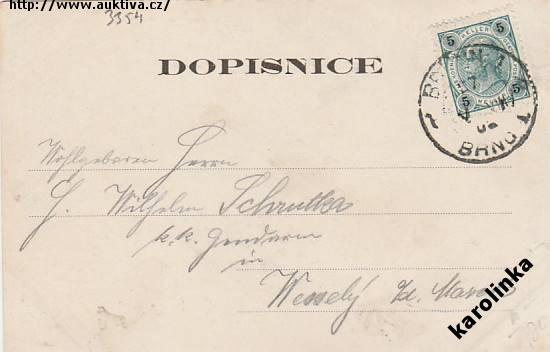 http://www.auktiva.cz/
3354
DOPISNICE
5 HELLER 5
5 5
BRÜNN 1
BRNO 1
Wohlgeboren Herrn
H. Wilhelm Schrutka
k. k. Gendarm
in
Wessely a/d. March
karolinka